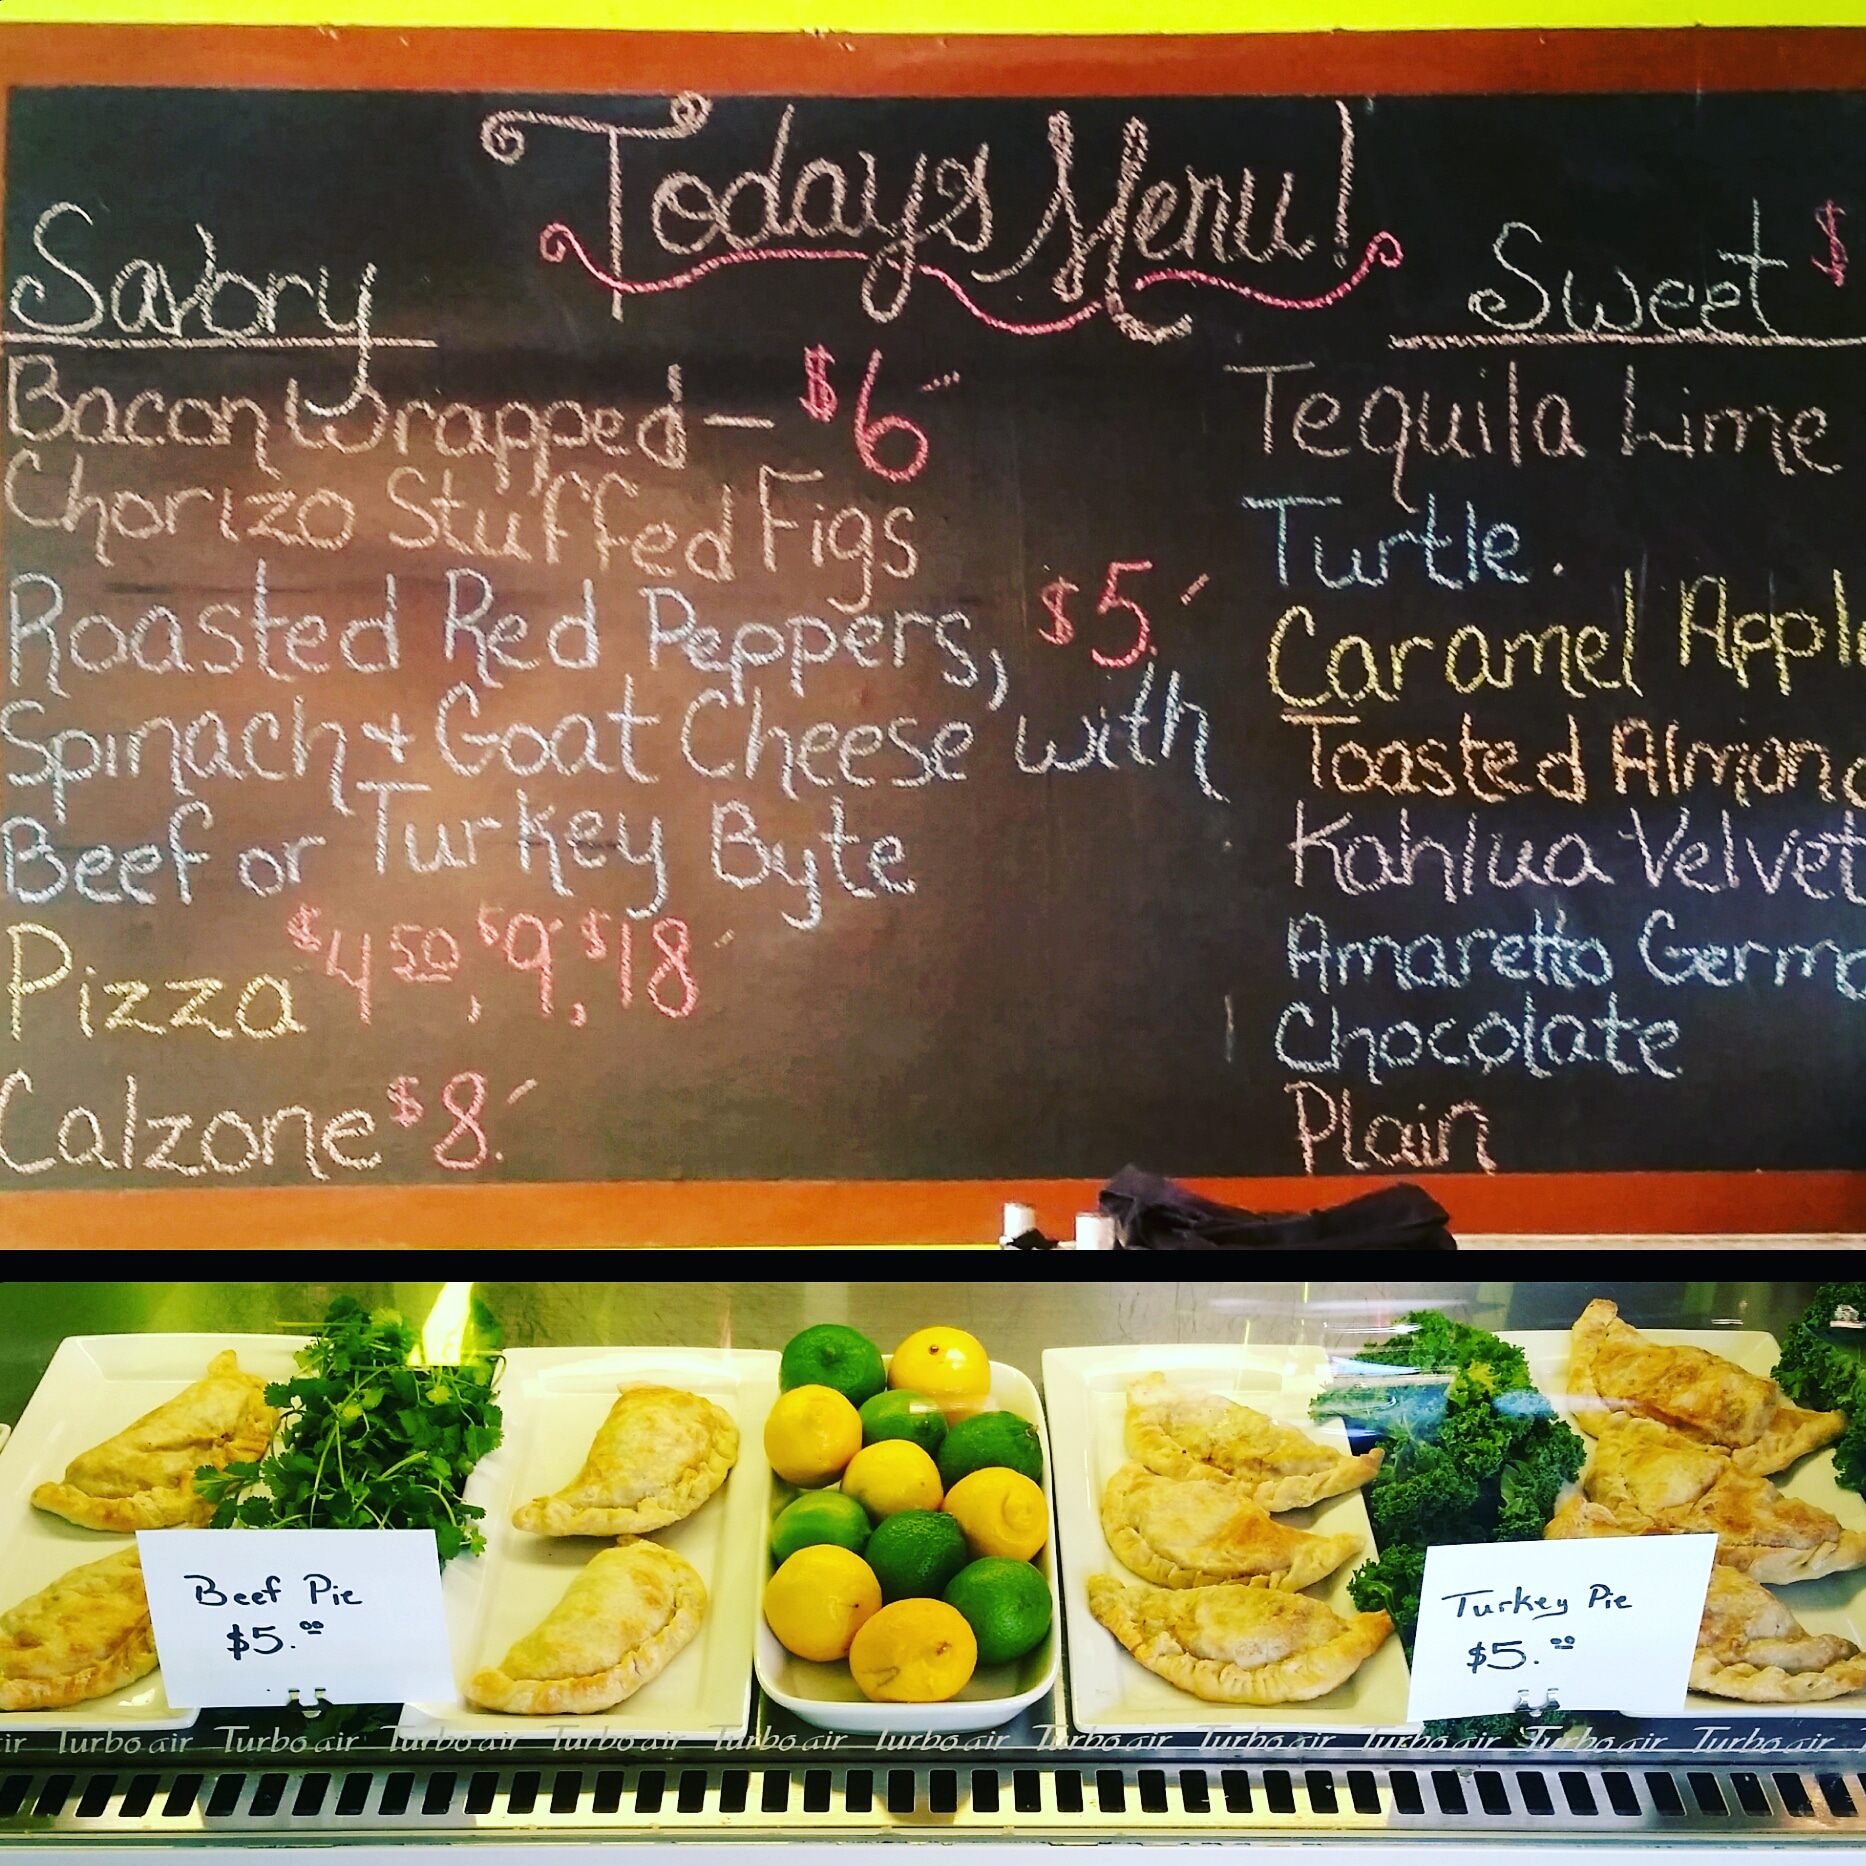 Todays Menu!
Savory
Bacon Wrapped - $6
Chorizo Stuffed Figs
Roasted Red Peppers, $5.
Spinach + Goat Cheese with
Beef or Turkey Byte
Pizza $4 50, $9, $18
Calzone $8.
Sweet $
Tequila Lime
Turtle.
Caramel Apple
Toasted Almond
Kahlua Velvet
Amaretto Germa
Chocolate
Plain
Beef Pie
$5.00
Turkey Pie
$5.00
air Turbo air Turbo air Turbo air Turbo air Turbo air Turbo air Turbo air Turbo air Turbo air Turbo air Turbo air